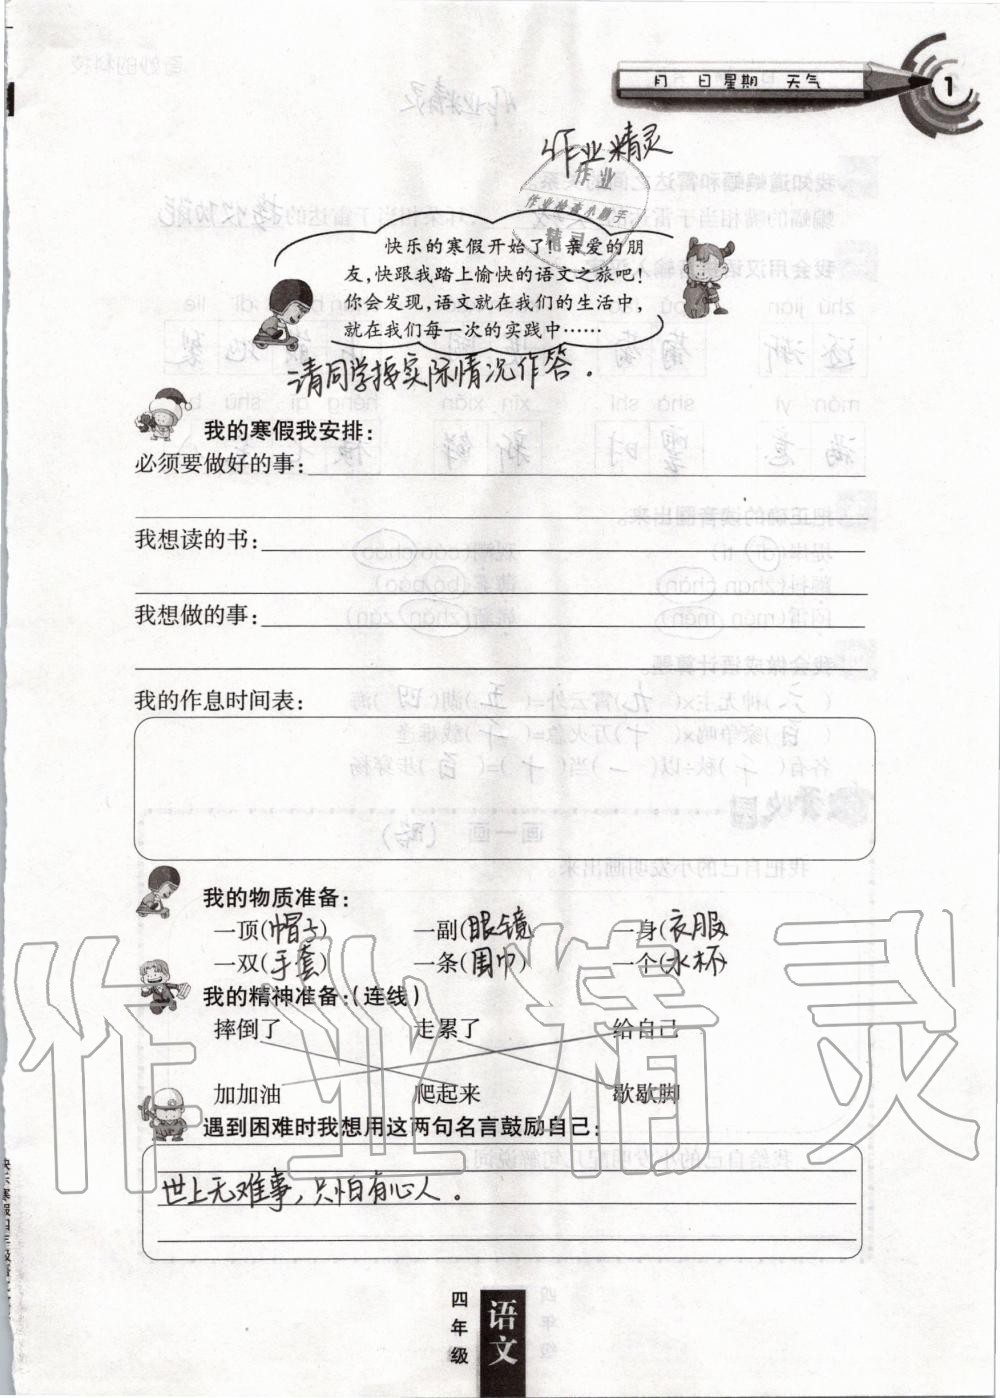 月 日 星期 天气 1
作业精灵
作业
作业检查小助手
精灵
快乐的寒假开始了！亲爱的朋
友,快跟我踏上愉快的语文之旅吧！
你会发现,语文就在我们的生活中,
就在我们每一次的实践中……
请同学按实际情况作答.
我的寒假我安排:
必须要做好的事:
我想读的书:
我想做的事:
我的作息时间表:
我的物质准备:
一顶(帽子) 一副(眼镜) 一身(衣服)
一双(手套) 一条(围巾) 一个(水杯)
我的精神准备:(连线)
摔倒了 走累了 给自己
加加油 爬起来 歇歇脚
遇到困难时我想用这两句名言鼓励自己:
世上无难事,只怕有心人.
作业精灵
四年级
语文